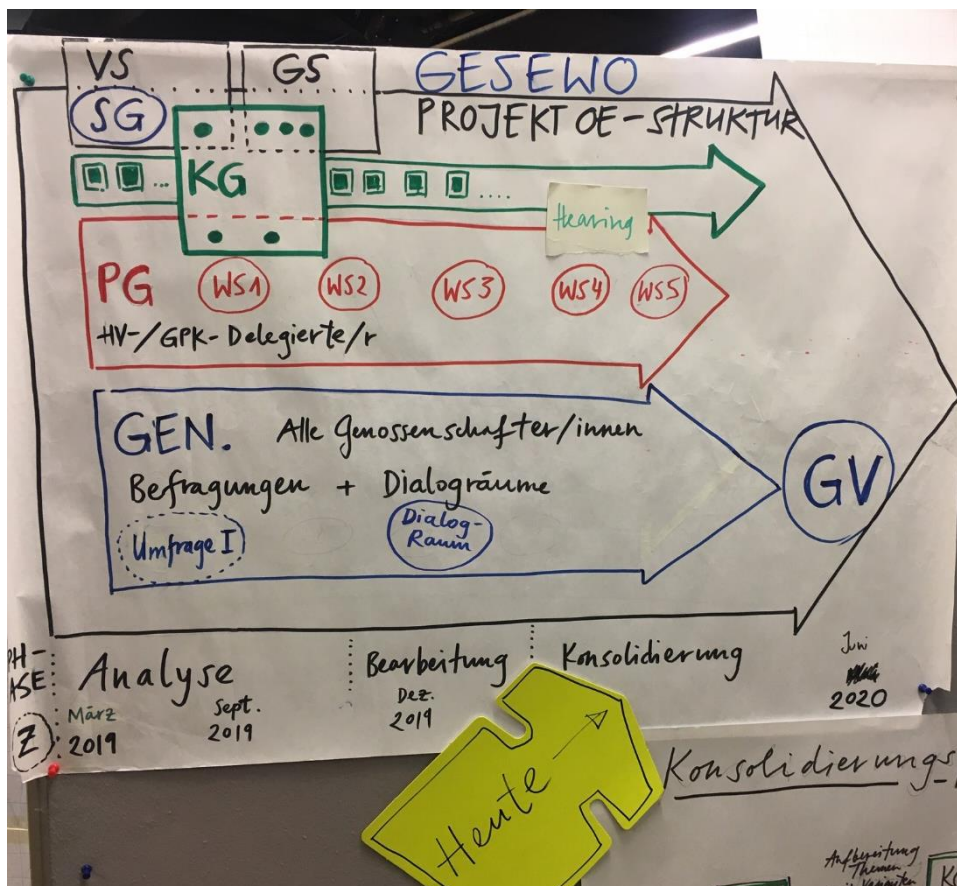 VS
GS
GESEWO
SG
PROJEKT OE-STRUKTUR
KG
...
....
Hearing
PG
WS1
WS2
WS3
WS4
WS5
HV-/GPK-Delegierte/r
GEN. Alle Genossenschafter/innen
Befragungen + Dialogräume
Umfrage I
Dialog-
Raum
GV
PH-
ASE:
Analyse
Bearbeitung
Konsolidierung
Z
März
2019
Sept.
2019
Dez.
2019
Juni
2020
Heute
Konsolidierungs
Aufbereitung
Themen